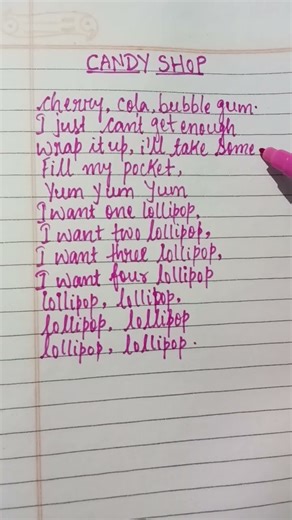 CANDY SHOP
cherry, cola, bubble gum.
I just cant get enough
Wrap it up, i'll take some
Fill my pocket,
Yum Yum Yum
I want one lollipop,
I want two lollipop,
I want three lollipop,
I want four lollipop
lollipop, lollipop,
lollipop, lollipop
lollipop, lollipop.